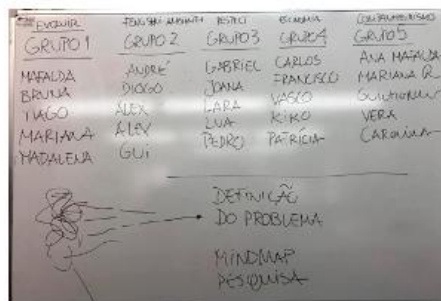 EVOLUIR
GRUPO 1
MAFALDA
BRUNA
TIAGO
MARIANA
MADALENA
GRUPO 2
ANDRÉ
DIOGO
ALEX
ALEX
GUI
GRUPO 3
GABRIEL
JOANA
LARA
LUA
PEDRO
ECONOMIA
GRUPO 4
CARLOS
FRANCISCO
VASCO
KIKO
PATRÍCIA
GRUPO 5
ANA MAFALDA
MARIANA R.
GUILHERME
VERA
CAROLINA
DEFINIÇÃO
DO PROBLEMA
MINDMAP
PESQUISA